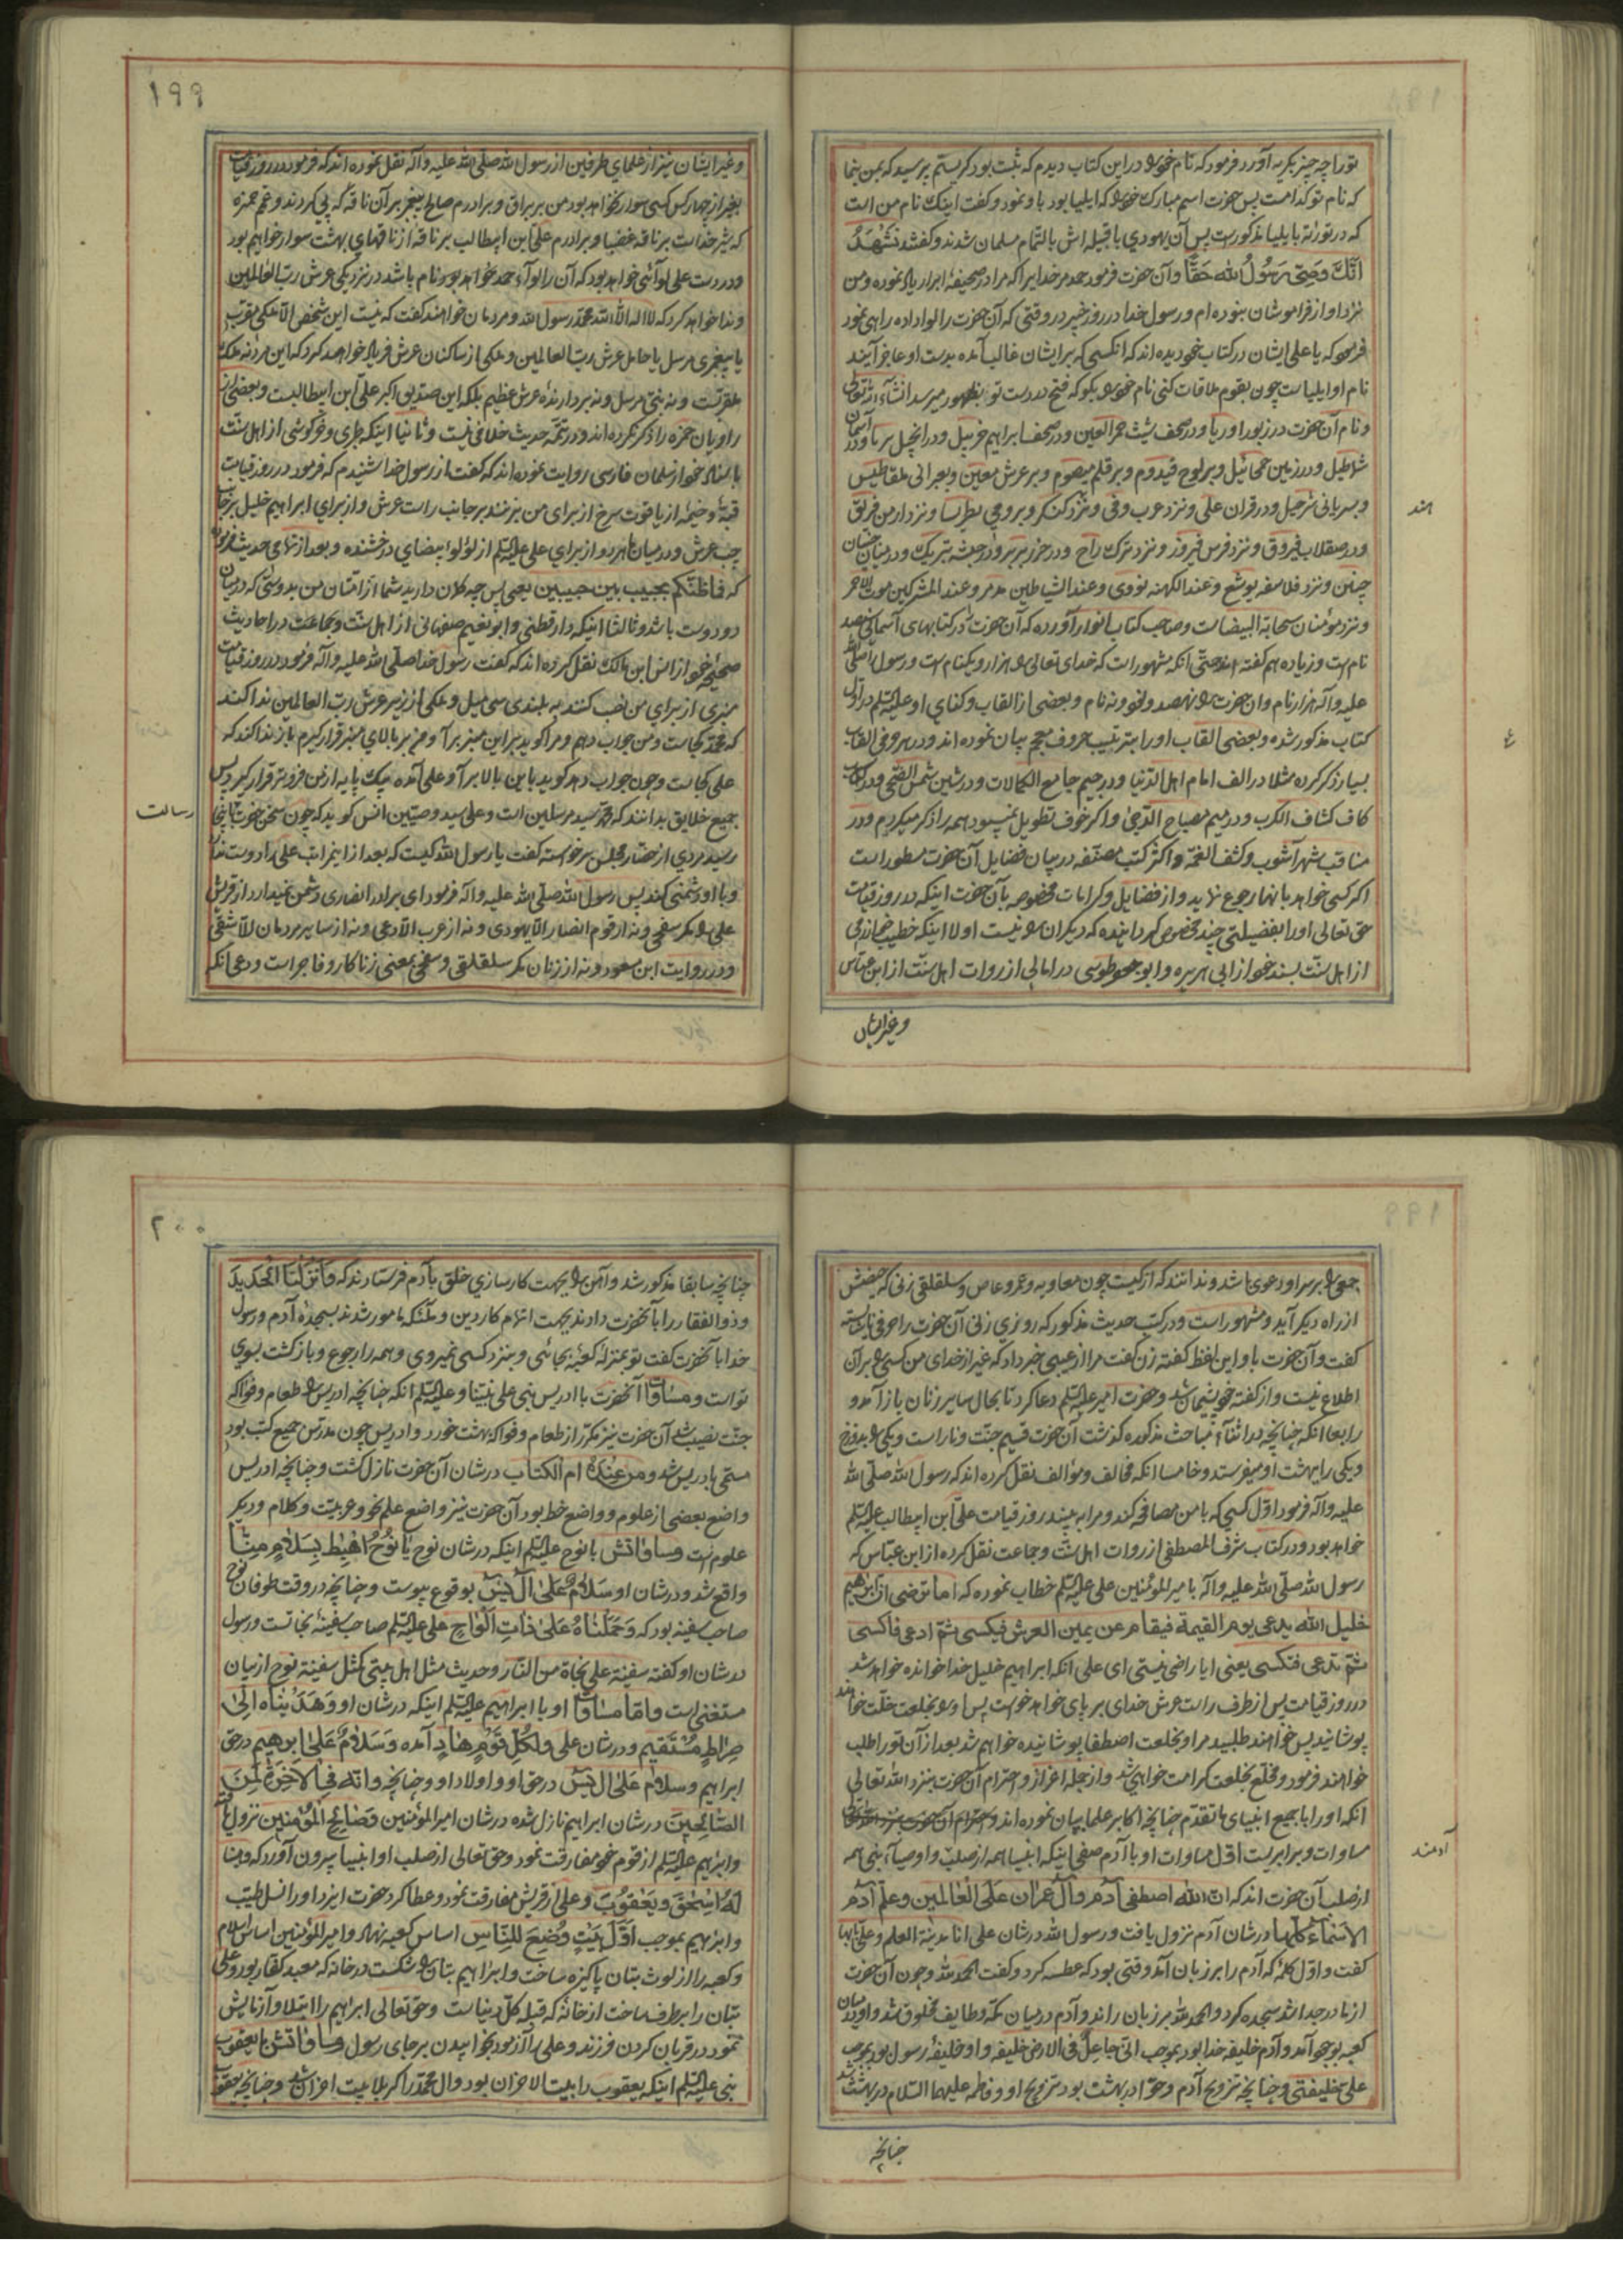 تو را چه چیز بگریه آورد فرمود که نام خود را در این کتاب دیدم که ثبت بود گریستم پرسید که بمن بنما
که نام تو کدامست پس حضرت اسم مبارک خود را که ایلیا بود باو نمود و گفت اینک نام من است
که در توراة بایلیا مذکورست پس آن یهودی با قبیله اش بالتمام مسلمان شدند و گفتند نَشْهَدُ
اَنَّکَ وَصِیُّ رَسُولُ اللّٰهِ حَقًّا و آن حضرت فرمود حمد مر خدایرا که مرا در صحیفهٔ ابرار یاد نموده و من
نزد او از فراموشان نبوده ام و رسول خدا در روز خیبر در وقتی که آن حضرت را لوا داده راهی نمود
فرمود که یا علی ایشان در کتاب خود دیده اند که انکسی که بر ایشان غالب آمده بدست او عاجز آیند
نام او ایلیاست چون بقوم ملاقات کنی نام خود را بگو که فتح در دست تو بظهور میرسد انشآء الله تعالی
و نام آن حضرت در زبور اوریا و در صحف شیث حجر العین و در صحف ابراهیم حزبیل و در انجیل بریا و در آسمان
شاطیل و در زمین حجائیل و بر لوح قیدوم و بر قلم میصوم و بر عرش معین و بعبرانی بلقاطیس
و بسریانی شرحیل و در قران علی و نزد عرب وفی و نزد کنکر و برومی بطرسا و نزد ارمن فریق
و در صقلاب فیروق و نزد فرس فیروز و نزد ترک راح و در خزر بربر و در حبش بتریک و در میان جنیان
چنین و نزد فلاسفه یوشع و عند الکهنه نووی و عند الشیاطین مدمر و عند المشرکین موت الاحمر
و نزد مؤمنان سحابة البیضاست و صاحب کتاب انوار آورده که آن حضرت را در کتابهای آسمانی سیصد
نام است و زیاده هم گفته اند حتی آنکه مشهور است که خدای تعالی را هزار و یکنام است و رسول را صلی الله
علیه و آله هزار نام و ان حضرت را نهصد و نود و نه نام و بعضی از القاب و کنای او علیه السلم در اول
کتاب مذکور شده و بعضی القاب او را بترتیب حروف معجم بیان نموده اند و در هر حرفی القاب
بسیار ذکر کرده مثلا در الف امام اهل الدنیا و در جیم جامع الکمالات و در شین شمس الضحی و در
کاف کشاف الکرب و در میم مصباح الدجی و اگر خوف تطویل نمیبود همه را ذکر میکردم و در
مناقب شهر آشوب و کشف الغمه و اکثر کتب مصنفه در بیان فضایل آن حضرت مسطور است
اگر کسی خواهد بانها رجوع نماید و از فضایل و کرامات مخصوصه بآن حضرت اینکه در روز قیامت
حق تعالی او را بفضیلتی چند مخصوص گرداینده که دیگران را نیست اولا اینکه خطیب خوارزمی
از اهل سنت بسند خود از ابی هریره و ابو جعفر طوسی در امالی از روات اهل سنت از ابن عباس
و غیر ایشان
هند
۱۹۹
و غیر ایشان نیز از علمای طرفین از رسول الله صلی الله علیه و اله نقل نموده اند که فرمود در روز قیامت
بغیر از چهار کس کسی سوار نخواهد بود من بر براق و برادرم صالح پیغمبر بر آن ناقه که پی کردند و عمم حمزه
که شیر خداست بر ناقه غضبا و برادرم علی ابن ابیطالب بر ناقه از ناقهای بهشت سوار خواهیم بود
و در دست علی لوآئی خواهد بود که آن را لوآء حمد خواهد بود نام باشد در نزدیکی عرش رب العالمین
و ندا خواهد کرد که لا اله الا الله محمد رسول الله و مردمان خواهند گفت که نیست این شخص الا ملکی مقرب
یا پیغمبری مرسل یا حامل عرش رب العالمین و ملکی از ساکنان عرش فریاد خواهد کرد که این مرد نه ملک
مقربست و نه نبی مرسل و نه بردارندهٔ عرش عظیم بلکه این صدیق اکبر علی ابن ابیطالبست و بعضی از
راویان حمزه را ذکر نکرده اند و در تتمه حدیث خلافی نیست و ثانیا اینکه طبری و خرکوشی از اهل سنت
باسناد خود از سلمان فارسی روایت نموده اند که گفت از رسول خدا شنیدم که فرمود در روز قیامت
قبه و خیمهٔ از یاقوت سرخ از برای من بزنند بر جانب راست عرش و از برای ابراهیم خلیل بر جانب
چپ عرش و در میان هر دو از برای علی علیه السلم از لؤلؤ بیضای درخشنده و بعد از تمامی حدیث فرموده
که فَما ظَنّکُم بحبیب بین حبیبین یعنی پس چه گمان دارید شما از انتشان من بدوستی که در میان
دو دوست باشد و ثالثا اینکه دارقطنی و ابو نعیم صفهانی از اهل سنت و جماعت در احادیث
صحیحهٔ خود از انس ابن مالک نقل کرده اند که گفت رسول خدا صلی الله علیه و اله فرمود در روز قیامت
منبری از برای من نصب کنند به بلندی سی میل و ملکی از زیر عرش رب العالمین ندا کند
که محمد کجاست و من جواب دهم و مرا گوید بر این منبر برآ و من بر بالای منبر قرار گیرم باز ندا کند که
علی کجاست و چون جواب دهد گوید باین بالا برآ و علی آمده یک پایه از من فروتر قرار گیرد پس
جمیع خلایق بدانند که محمد سید مرسلین است و علی سید وصیین انس گوید که چون سخن حضرت باینجا
رسید مردی از حضار مجلس برخواسته گفت یا رسول الله کیست که بعد از این مراتب علی را دوست ندارد
و با او دشمنی کند پس رسول الله صلی الله علیه و اله فرمود ای برادر انصاری دشمن نمیدارد از قریش
علی را مگر سفحی و نه از قوم انصار الا یهودی و نه از عرب الا دعی و نه از سایر مردمان الا شقی
و در روایت ابن مسعود و نه از زنان مگر سلقلقی و سفحی بمعنی زناکار و فاجر است و دعی انکه
رسالت
جمعی را بر سر او دعوی باشد و ندانند که از کیست چون معاویه و عمرو عاص و سلقلقی زنی که حیضش
از راه دیگر آید و مشهور است و در کتب حدیث مذکور که روزی زنی آن حضرت را حرفی ناشایسته
گفت و آن حضرت باو این لفظ گفته زن گفت مرا از عیبی خبر داد که غیر از خدای من کسی را بر آن
اطلاع نیست و از گفته خود پشیمان شد و حضرت امیر علیه السلم دعا کرد تا بحال سایر زنان باز آمد و
رابعا انکه چنانچه در اثنآء مباحث مذکوره گذشت آن حضرت قسیم جنت و نار است و یکی را بدوزخ
و یکی را بهشت او میفرستد و خامسا انکه مخالف و مؤالف نقل کرده اند که رسول الله صلی الله
علیه و اله فرمود اول کسی که با من مصافحه کند و مرا به بیند روز قیامت علی ابن ابیطالب علیه السلم
خواهد بود و در کتاب شرف المصطفی از روات اهل سنت و جماعت نقل کرده از ابن عباس که
رسول الله صلی الله علیه و اله با میر المؤمنین علی علیه السلم خطاب نموده که اما ترضی ان ابرهیم
خلیل الله یدعی یوم القیمة فیقام عن یمین العرش فیکسی ثم ادعی فاکسی
ثم تدعی فتکسی یعنی ایا راضی نیستی ای علی انکه ابراهیم خلیل خدا خوانده خواهد شد
در روز قیامت پس از طرف راست عرش خدای بر پای خواهد خواست پس او را بخلعت خلت خواهند
پوشانید پس خواهند طلبید مرا و بخلعت اصطفا پوشانیده خواهم شد بعد از آن تو را طلب
خواهند فرمود و مخلع بخلعت کرامت خواهی شد و از جمله اعزاز و احترام آن حضرت بنزد الله تعالی
انکه او را با جمیع انبیای ما تقدم چنانچه اکابر علما بیان نموده اند
مساوات و برابریست اول مساوات او با آدم صفی اینکه انبیا همه از صلب و اوصیآء نبی همه
از صلب آن حضرت اند که ان اللّٰه اصطفی آدم و آل عمران علی العالمین و علم آدم
الاسمآء کلها در شان آدم نزول یافت و رسول الله در شان علی انا مدینة العلم و علی بابها
گفت و اول کلمهٔ که آدم را بر زبان آمد وقتی بود که عطسه کرد و گفت الحمد لله و چون آن حضرت
از مادر جدا شد سجده کرد و الحمد لله بر زبان راند و آدم در میان مکه و طایف مخلوق شد و او در میان
کعبه بوجود آمد و آدم خلیفه خدا بود بموجب انی جاعل فی الارض خلیفه و او خلیفهٔ رسول بود بموجب
علی خلیفتی و چنانچه تزویج آدم و حوا در بهشت بود تزویج او و فاطمه علیهما السلام در بهشت شد
چنانچه
آدمند
۲۰۰
چنانچه سابقا مذکور شد و آهن را بجهت کارسازی خلق بآدم فرستادند که وَاَنْزَلْنَا الْحَدیدَ
و ذوالفقار را بآنحضرت دادند بجهت اتمام کار دین و ملئکه مامور شدند بسجدهٔ آدم و رسول
خدا بآنحضرت گفت تو بمنزلهٔ کعبهٔ بجائی و بنزد کسی نمیروی و همه را رجوع و بازگشت بسوی
تو است و مساوات آنحضرت با ادریس نبی علی نبینا و علیه السلم انکه چنانچه ادریس را طعام و فواکه
جنت نصیب شد آن حضرت نیز مکرر از طعام و فواکه بهشت خورد و ادریس چون مدرس جمیع کتب بود
مسمی بادریس شد و مَن عِندَهُ ام الکتاب در شان آن حضرت نازل گشت و چنانچه ادریس
واضع بعضی از علوم و واضع خط بود آن حضرت نیز واضع علم نحو و عربیت و کلام و دیگر
علوم است و مساواتش با نوح علیه السلم اینکه در شان نوح یَا نُوحُ اهْبِطْ بِسَلٰامٍ مِنّٰا
واقع شد و در شان او سَلَامٌ عَلیٰ اٰلِ یٰسٓ بوقوع پیوست و چنانچه در وقت طوفان نوح
صاحب سفینه بود که وَحَمَلْنَاهُ عَلیٰ ذَاتِ اَلْوَاحٍ علی علیه السلم صاحب سفینهٔ نجاتست و رسول
در شان او گفته سفینة علی نجاة من النار و حدیث مثل اهل بیتی کمثل سفینة نوح از بیان
مستغنی است و اما مساوات او با ابراهیم علیه السلم اینکه در شان او وَهَدَیْنَاهُ اِلیٰ
صِرٰاطٍ مُسْتَقیمٍ و در شان علی وَلِکُلِّ قَوْمٍ هَادٍ آمده وَسَلَامٌ عَلیٰ اِبرٰهیم در حق
ابراهیم و سلام عَلیٰ اٰلِ یٰسٓ در حق او و اولاد او و چنانچه وَاِنَّهُ فِی الْاٰخِرَةِ لَمِنَ
الصَّالِحینَ در شان ابراهیم نازل شده در شان امیر المؤمنین وَصَالِحُ الْمُؤْمِنینَ نزول یافته
و ابراهیم علیه السلم از قوم خود مفارقت نمود و حق تعالی از صلب او انبیا بیرون آورد که وَهَبْنَا
لَهُ اِسْحٰقَ وَیَعْقُوبَ و علی از قریش مفارقت نمود و عطا کرد حضرت ایزد او را نسل طیب
و ابراهیم بموجب اَوَّلَ بَیْتٍ وُضِعَ لِلنَّاسِ اساس کعبه نهاد و امیر المؤمنین اساس اسلام
و کعبه را از لوث بتان پاکیزه ساخت و ابراهیم بتان را شکست در خانه که معبد کفار بود و علی
بتان را برطرف ساخت از خانهٔ که قبلهٔ کل دنیاست و حق تعالی ابراهیم را ابتلا و آزمایش
نمود در قربان کردن فرزند و علی را آزمود بخوابیدن بر جای رسول و مساواتش با یعقوب
نبی علیه السلم اینکه یعقوب را بیت الاحزان بود و ال محمد را کربلا بیت احزان شد و چنانچه یعقوب